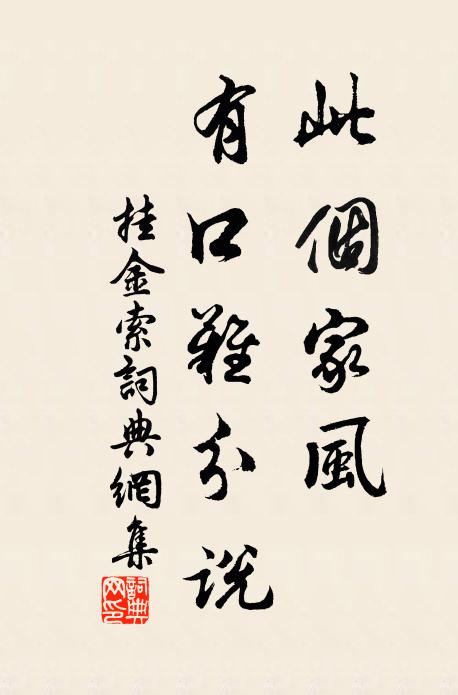 此個家風
有口難分説
挂金索詞典網集
詞典网印